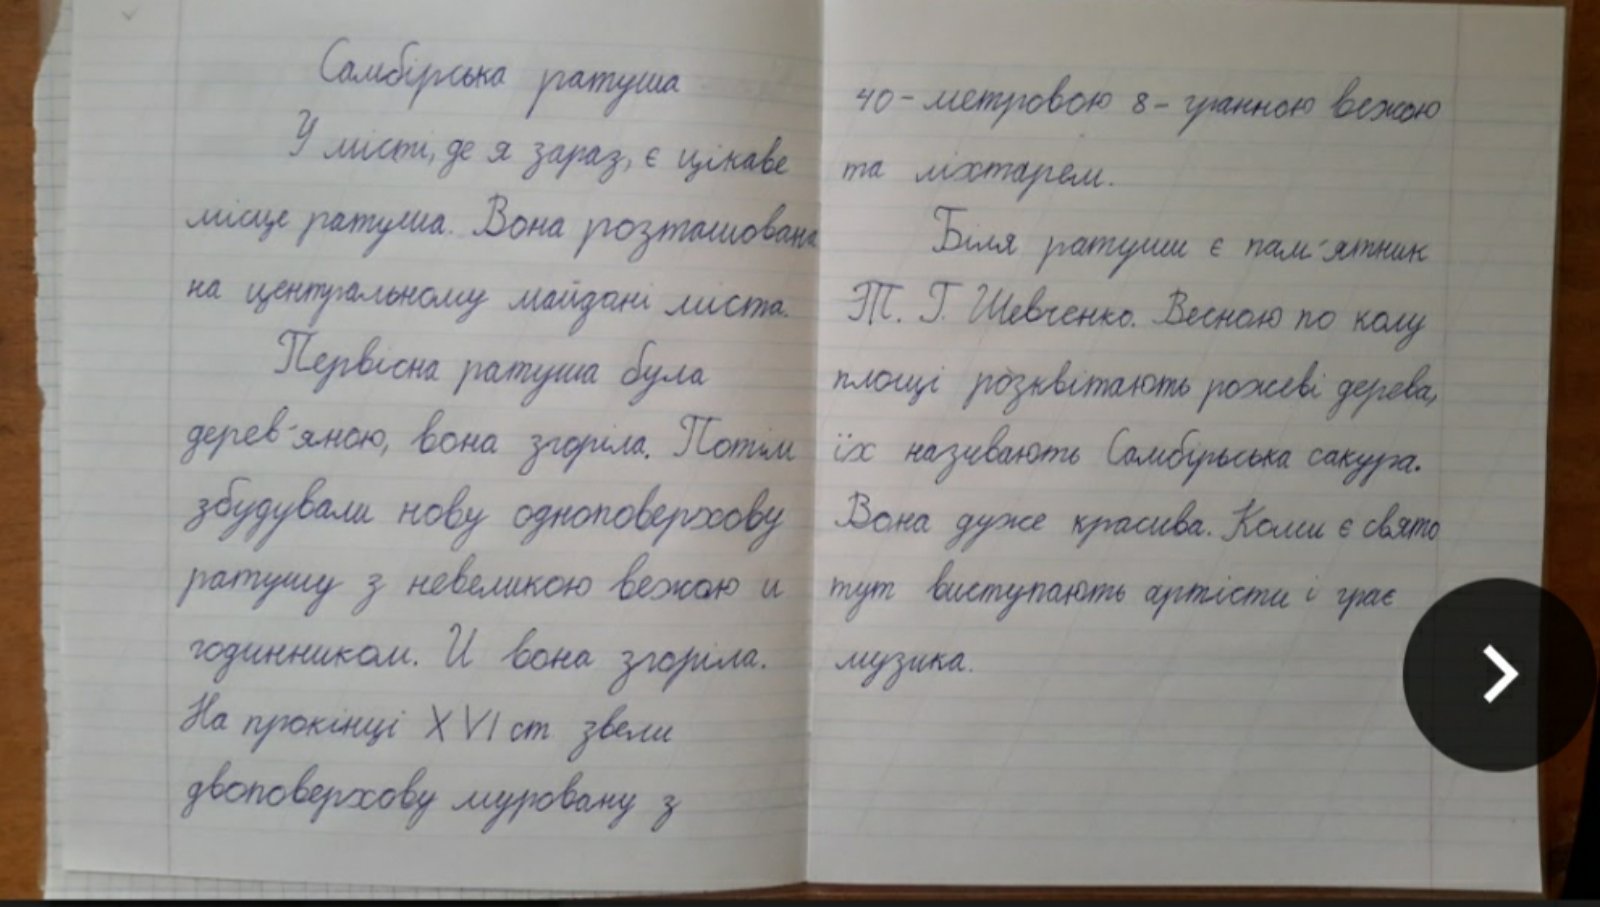 Самбірська ратуша
У місті, де я зараз, є цікаве
місце ратуша. Вона розташована
на центральному майдані міста.
Первісна ратуша була
дерев'яною, вона згоріла. Потім
збудували нову одноповерхову
ратушу з невеликою вежою и
годинником. И вона згоріла.
На прокінці XVI ст звели
двоповерхову муровану з
40-метровою 8-гранною вежою
та ліхтарем.
Біля ратуши є пам'ятник
Т. Г. Шевченко. Весною по колу
площі розквітають рожеві дерева,
їх називають Самбірьська сакура.
Вона дуже красива. Коли є свято
тут виступають артісти і грає
музика.